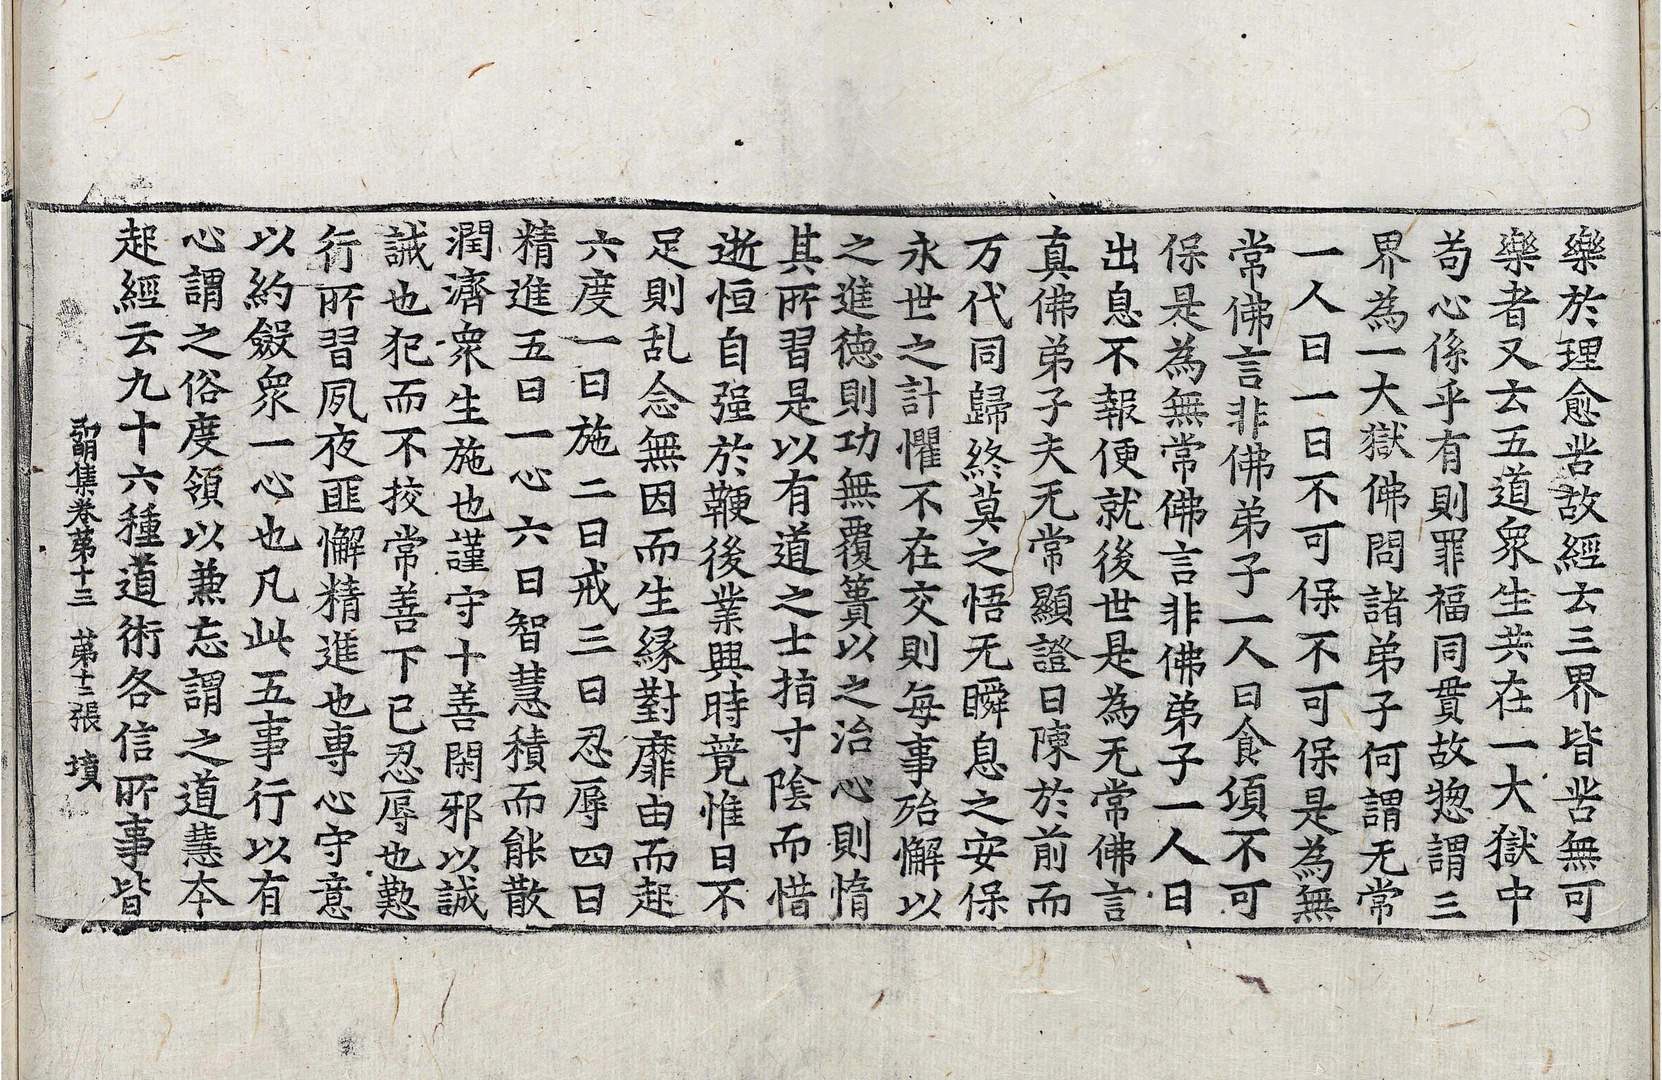 樂於理愈苦故經云三界皆苦無可
樂者又云五道衆生共在一大獄中
苟心係乎有則罪福同貫故惣謂三
界為一大獄佛問諸弟子何謂无常
一人曰一日不可保不可保是為無
常佛言非佛弟子一人曰食須不可
保是為無常佛言非佛弟子一人曰
出息不報便就後世是為无常佛言
真佛弟子夫无常顯證日陳於前而
万代同歸終莫之悟无瞬息之安保
永世之計懼不在交則每事殆懈以
之進德則功無覆簣以之治心則惰
其所習是以有道之士指寸陰而惜
逝恒自强於鞭後業興時竟惟日不
足則乱念無因而生緣對靡由而起
六度一曰施二曰戒三曰忍辱四曰
精進五曰一心六曰智慧積而能散
潤濟衆生施也謹守十善閑邪以誠
誡也犯而不挍常善下已忍辱也懃
行所習夙夜匪懈精進也専心守意
以約斂衆一心也凡此五事行以有
心謂之俗度領以兼忘謂之道慧本
起經云九十六種道術各信所事皆
弘明集卷第十三 第十二張 墳